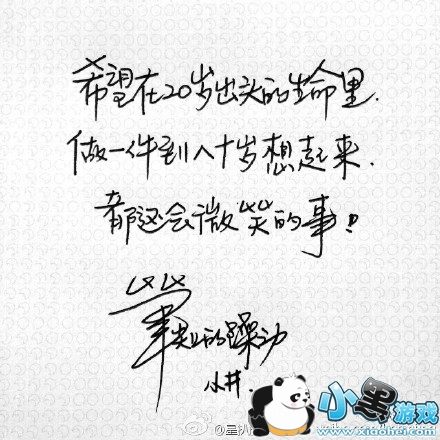 希望在20岁出头的生命里.
做一件到八十岁想起来.
都还会微笑的事!
毕业的躁动
小井.
@星扒
小黑游戏
www.xiaohei.com